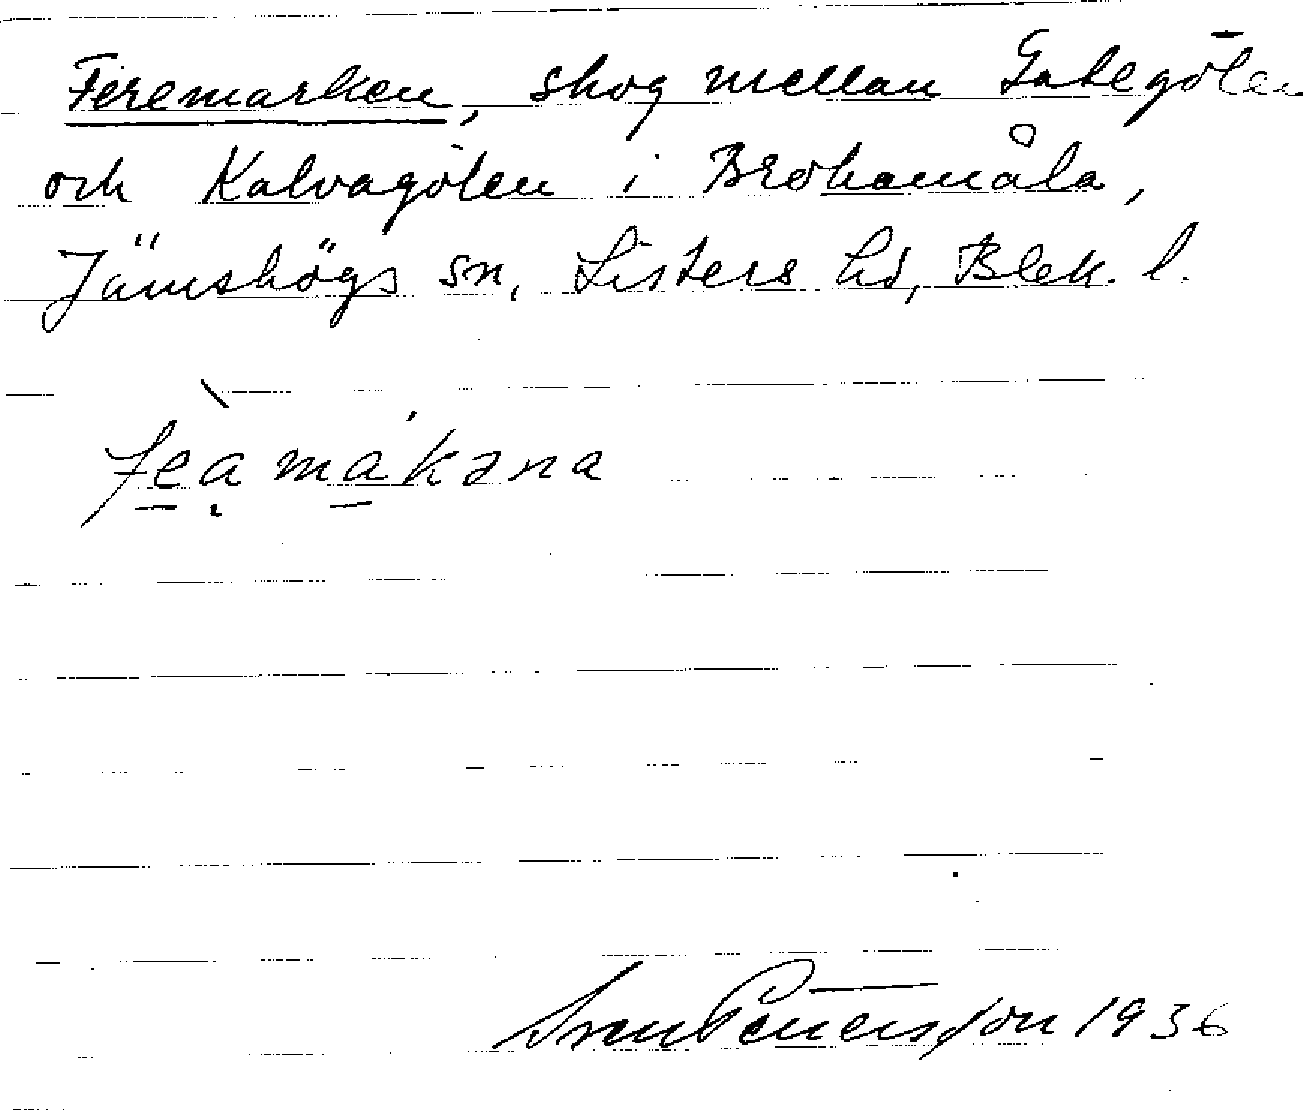 Feremarken, skog mellan Gakegölen
och Kalvagölen i Brokamåla,
Jämshögs sn, Listers hd, Blek. l.
feamákəna
Sven Pettersson 1936